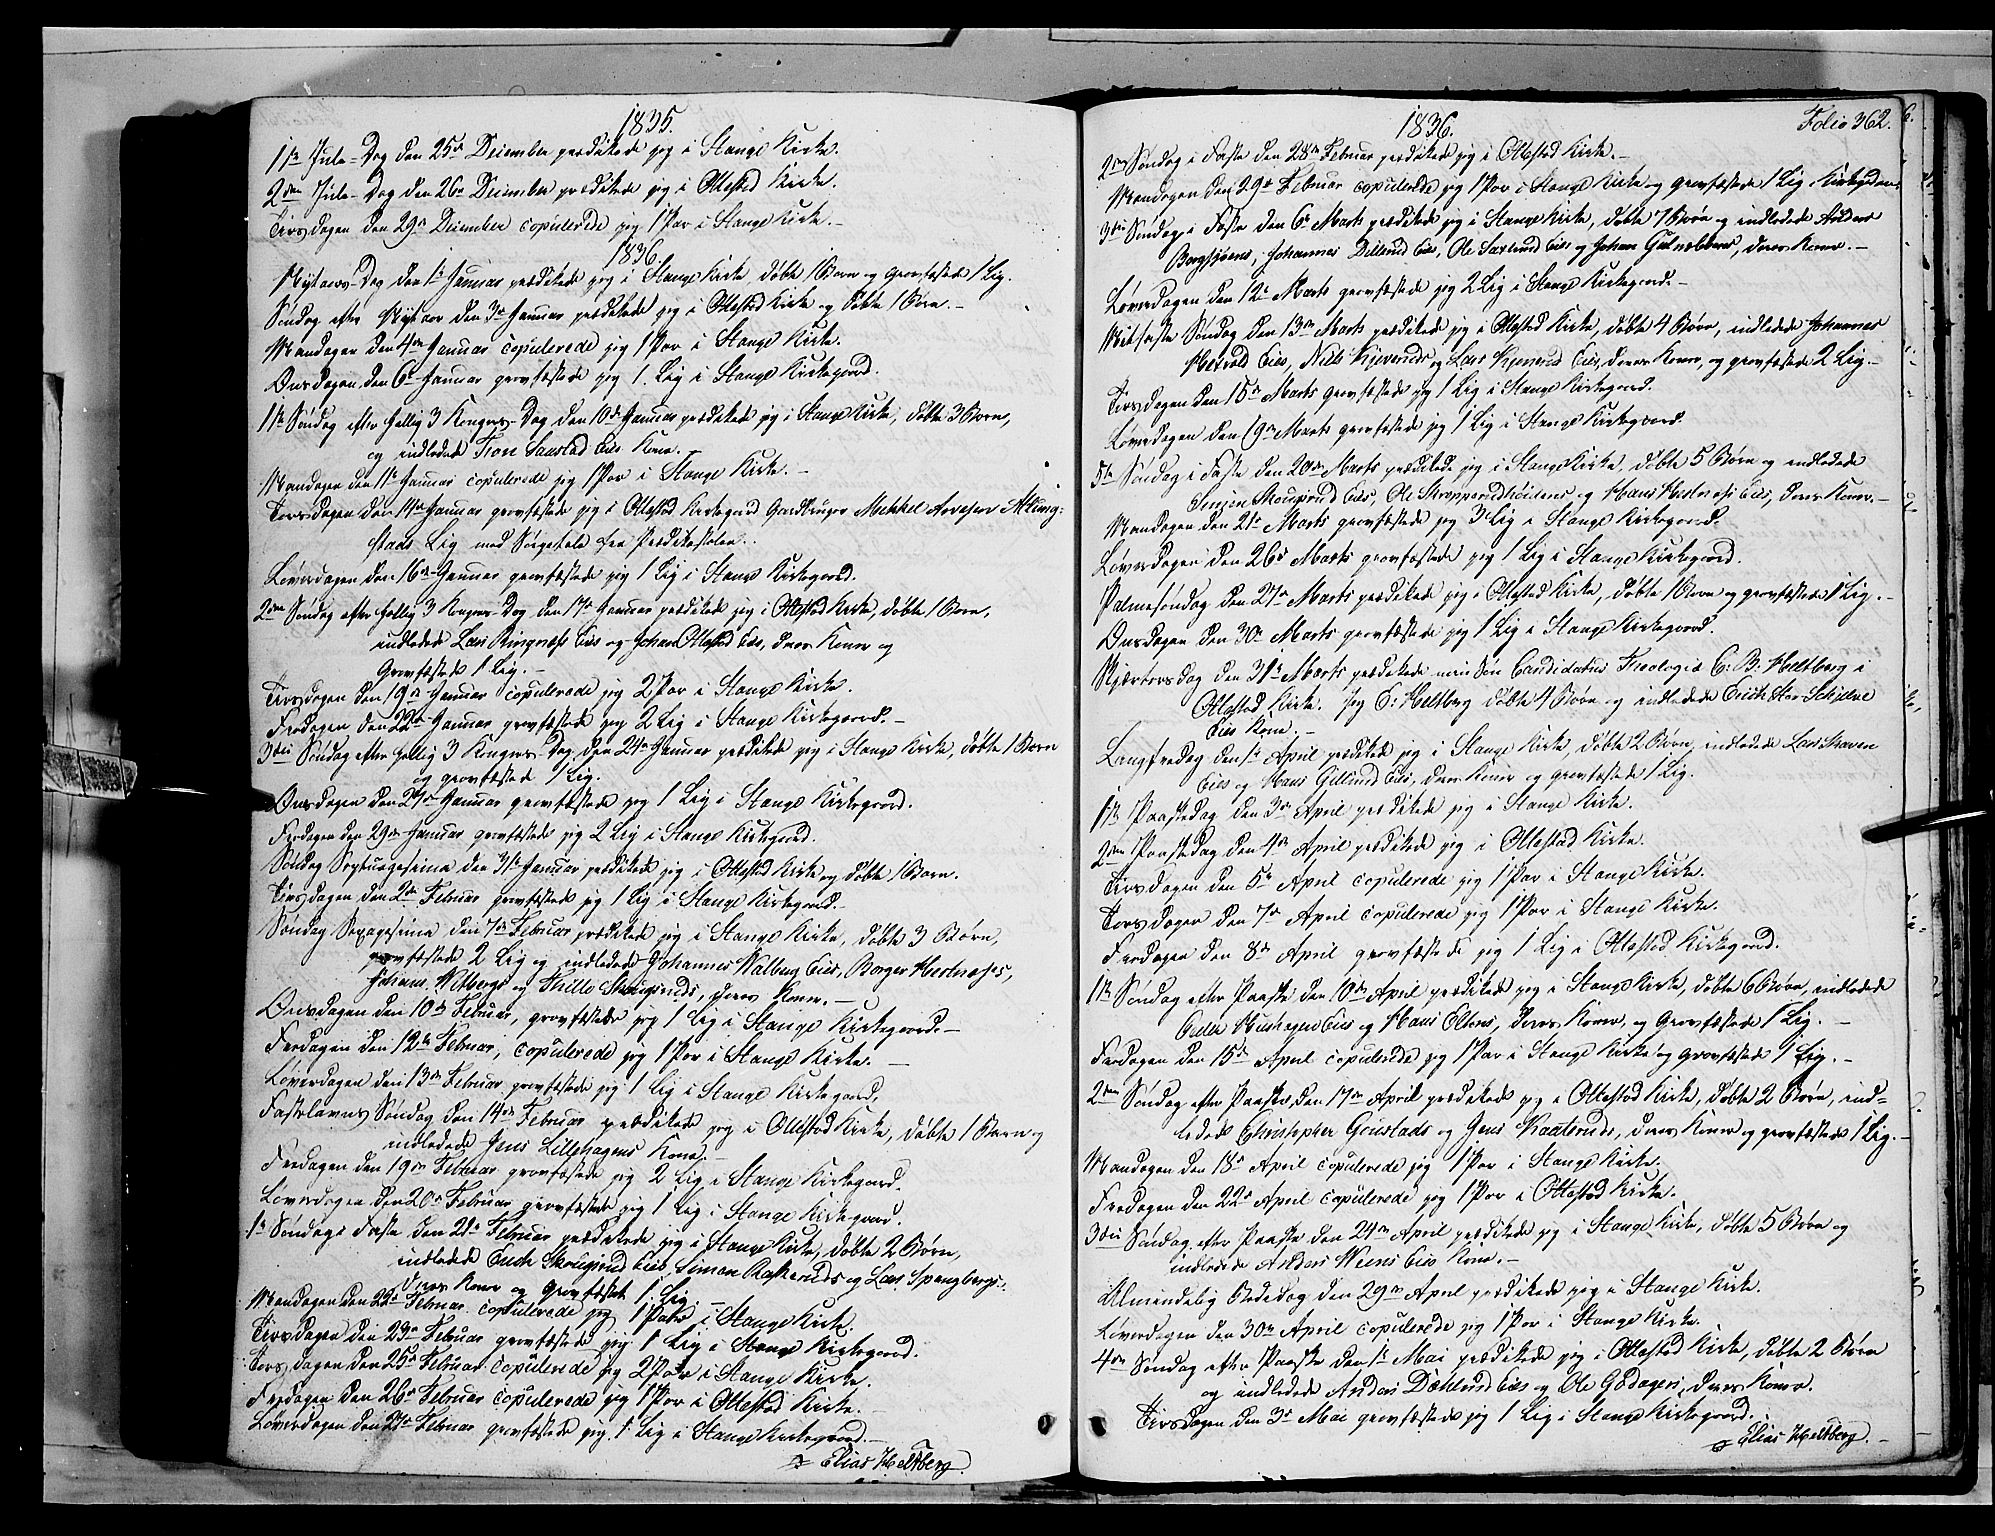 1835.
1ste Jule-Dag den 25de December prædikede jeg i Stange Kirke.
2den Jule-Dag den 26de December prædikede jeg i Ottestad Kirke.
Tirsdagen den 29de December copulerede jeg 1 Par i Stange Kirke.-
1836.
Nytaars-Dag den 1ste Januar prædikede jeg i Stange Kirke, døbte 1 Barn og grovfæstede 1 Lig.
Søndag efter Nytaar den 3de Januar prædikede jeg i Ottestad Kirke og døbte 1 Barn.-
Mandagen den 4de Januar copulerede jeg 1 Par i Stange Kirke.
Onsdagen den 6te Januar grovfæstede jeg 1 Lig i Stange Kirkegaard.
1ste Søndag efter hellig 3 Kongers-Dag den 10de Januar prædikede jeg i Stange Kirke, døbte 3 Børn,
og indledede Saastad Eies Kone.-
Mandagen den 11te Januar copulerede jeg 1 Par i Stange Kirke.-
Torsdagen den 14de Januar grovfæstede jeg i Ottestad Kirkegaard Gaardbruger Mekkel Arvesen
stads Lig med Sørgetale fra Prædikestolen.
Løverdagen den 16de Januar grovfæstede jeg 1 Lig i Stange Kirkegaard.
2den Søndag efter hellig 3 Kongers-Dag den 17de Januar prædikede jeg i Ottestad Kirke, døbte 1 Barn,
indledede Lars Ringnæss Eies og Johan Ottestad Eies, deres Koner og
Grovfæstede 1 Lig.-
Tirsdagen den 19de Januar copulerede jeg 2 Par i Stange Kirke.
Fredagen den 22de Januar grovfæstede jeg 2 Lig i Stange Kirkegaard.-
3die Søndag efter hellig 3 Kongers-Dag den 24de Januar prædikede jeg i Stange Kirke, døbte 1 Barn
og grovfæstede 1 Lig.
Onsdagen den 27de Januar grovfæstede jeg 1 Lig i Stange Kirkegaard.
Fredagen den 29de Januar grovfæstede jeg 2 Lig i Stange Kirkegaard.
Søndag Septuagesima den 31te Januar prædikede jeg i Ottestad Kirke og døbte 1 Barn.
Tirsdagen den 2den Februar grovfæstede jeg 1 Lig i Stange Kirkegaard.-
Søndag Sexagesima den 7de Februar prædikede jeg i Stange Kirke, døbte 3 Børn,
grovfæstede 2 Lig og indledede Johannes Valberg Eies, Borger Hertnæses,
Johans Vitbergs og Skougruds, deres Koner.-
Onsdagen den 10de Februar, grovfæstede jeg 1 Lig i Stange Kirkegaard.-
Fredagen den 12te Februar, copulerede jeg 1 Par i Stange Kirke.-
Løverdagen den 13de Februar grovfæstede jeg 1 Lig i Stange Kirkegaard.
Fastelavns Søndag den 14de Februar prædikede jeg i Ottestad Kirke, døbte 1 Barn og
indledede Jens Lillehagens Kone.-
Fredagen den 19de Februar grovfæstede jeg 2 Lig i Stange Kirkegaard.
Løverdagen den 20de Februar grovfæstede jeg 1 Lig i Stange Kirkegaard.
1ste Søndag i Faste den 21de Februar prædikede jeg i Stange Kirke, døbte 2 Børn,
indledede Skougrud Eies, Simon Bakkeruds og Lars Spangbergs,
deres Koner og Grovfæstet 1 Lig.-
Mandagen den 22de Februar copulerede jeg 1 Par i Stange Kirke.
Tirsdagen den 23de Februar grovfæstede jeg 1 Lig i Stange Kirkegaard.
Torsdagen den 25de Februar copulerede jeg 2 Par i Stange Kirke.
Fredagen den 26de Februar copulerede jeg 1 Par i Ottestad Kirke.-
Løverdagen den 27de Februar grovfæstede jeg 1 Lig i Stange Kirkegaard.-
Elias Heltberg.
1836.
Folio 362.
2den Søndag i Faste den 28de Februar prædikede jeg i Ottestad Kirke.-
Mandagen den 29de Februar copulerede jeg 1 Par i Stange Kirke og Grovfæstede 1 Lig
3die Søndag i Faste den 6te Marts prædikede jeg i Stange Kirke, døbte 7 Børn og indledede Anders
Borgsjøens, Johannes Dellerud Eies, Ole Saxlund Eies og Johan deres Koner.-
Løverdagen den 12te Marts grovfæstede jeg 2 Lig i Stange Kirkegaard.-
Mitfaste Søndag den 13de Marts prædikede jeg i Ottestad Kirke, døbte 4 Børn, indledede Johannes
Hetvold Eies, Niels og Lars Eies, deres Koner, og grovfæstede 2 Lig.-
Tirsdagen den 15de Marts grovfæstede jeg 1 Lig i Stange Kirkegaard.
Løverdagen den 19de Marts grovfæstede jeg 1 Lig i Stange Kirkegaard.
5te Søndag i Faste den 20de Marts prædikede jeg i Stange Kirke, døbte 5 Børn og indledede
Skougrud Eies, Ole og Hans Hertnæss Eies, deres Koner.-
Mandagen den 21de Marts grovfæstede jeg 3 Lig i Stange Kirkegaard.
Løverdagen den 26de Marts grovfæstede jeg 1 Lig i Stange Kirkegaard.
Palmesøndag den 27de Marts prædikede jeg i Ottestad Kirke, døbte 1 Barn og grovfæstede 1 Lig.-
Onsdagen den 30de Marts grovfæstede jeg 1 Lig i Stange Kirkegaard.
Skjærtorsdag den 31te Marts prædikede min Søn Candidatus Theologiæ E: B: Heltberg i
Ottestad Kirke. Jeg E: Heltberg døbte 4 Børn og indledede
Eies Kone.-
Langfredag den 1ste April prædikede jeg i Stange Kirke, døbte 2 Børn, indledede Lars Skaven
Eies og Hans Gillund Eies, deres Koner og grovfæstede 1 Lig.
1ste Paaskedag den 3die April prædikede jeg i Stange Kirke.
2den Paaskedag den 4de April prædikede jeg i Ottestad Kirke.
Tirsdagen den 5te April copulerede jeg 1 Par i Stange Kirke.
Torsdagen den 7de April copulerede jeg 1 Par i Stange Kirke.
Fredagen den 8de April grovfæstede jeg 1 Lig i Ottestad Kirkegaard.
1ste Søndag efter Paaske den 10de April prædikede jeg i Stange Kirke, døbte 6 Børn, indledede
Eies og Hans Eltons, deres Koner, og Grovfæstede 1 Lig.-
Fredagen den 15de April copulerede jeg 1 Par i Stange Kirke og grovfæstede 1 Lig.-
2den Søndag efter Paaske, den 17de April prædikede jeg i Ottestad Kirke, døbte 2 Børn, ind-
ledede Christopher Gonstads og Jens Kaateruds, deres Koner og grovfæstede 1 Lig.-
Mandagen den 18de April copulerede jeg 1 Par i Stange Kirke.
Fredagen den 22de April copulerede jeg 1 Par i Ottestad Kirke.
3die Søndag efter Paaske den 24de April prædikede jeg i Stange Kirke, døbte 5 Børn og
indledede Anders Weens Eies Kone.-
Almindelig Bededag den 29de April prædikede jeg i Stange Kirke.
Løverdagen den 30te April copulerede jeg 1 Par i Stange Kirke.
4de Søndag efter Paaske den 1ste Mai prædikede jeg i Ottestad Kirke, døbte 2 Børn
og indledede Anders Dæhlund Eies og Ole Godagers, deres Koner.
Tirsdagen den 3die Mai grovfæstede jeg 1 Lig i Stange Kirkegaard.
Elias Heltberg.-